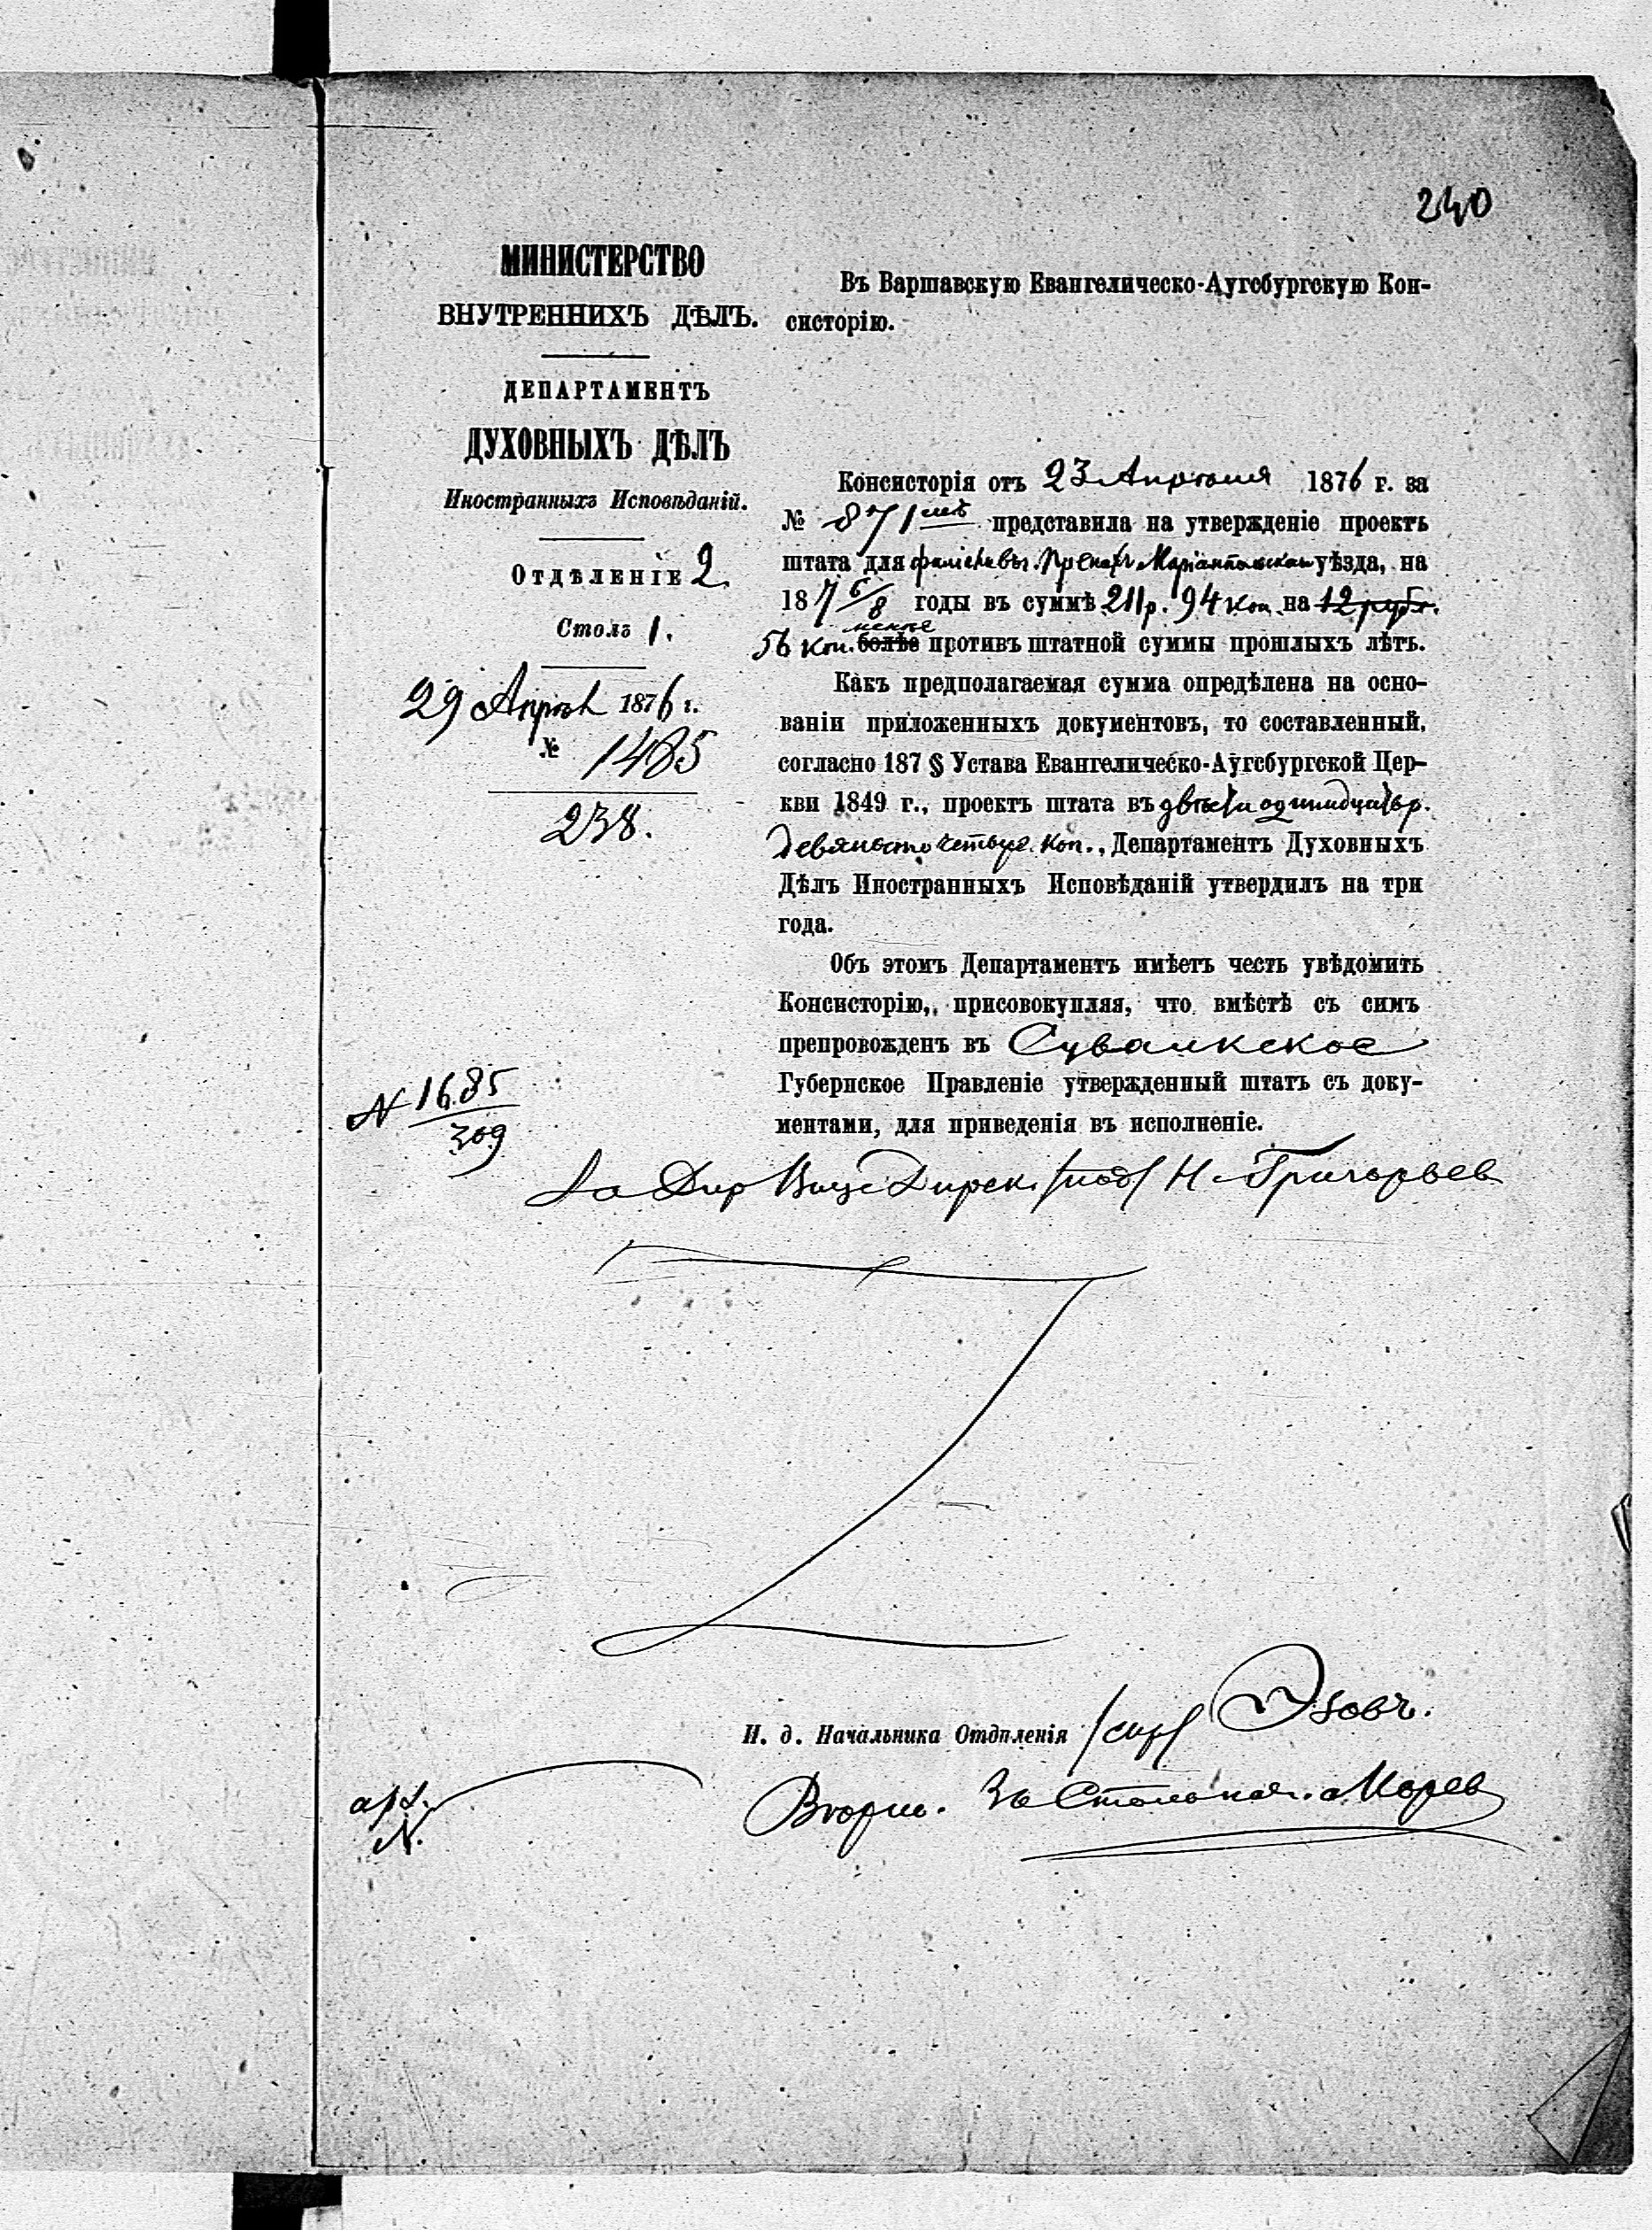 240
МИНИСТЕРСТВО
ВНУТРЕННИХЪ ДѢЛЪ.
ДЕПАРТАМЕНТЪ
ДУХОВНЫХЪ ДѢЛЪ
Иностранныхъ Исповѣданій.
Отдѣленіе 2.
Столъ 1.
29 Апрѣл 1876 г.
№ 1485
238.
Въ Варшавскую Евангелическо-Аугсбургскую Кон-
систорію.
Консисторія отъ 23 Апрѣля 1876 г. за
№ 871 представила на утвержденіе проектъ
штата для Маріампольскаго уѣзда, на
187 6/8 годы въ суммѣ 211 р. 94 коп. на 12 рубл.
менѣе
56 коп. болѣе противъ штатной суммы прошлыхъ лѣтъ.
Какъ предполагаемая сумма опредѣлена на осно-
ваніи приложенныхъ документовъ, то составленный,
согласно 187 § Устава Евангелическо-Аугсбургской Цер-
кви 1849 г., проектъ штата въ двѣсти одинадцать р.
девяносто четыре коп., Департаментъ Духовныхъ
Дѣлъ Иностранныхъ Исповѣданій утвердилъ на три
года.
Объ этомъ Департаментъ имѣетъ честь увѣдомить
Консисторію, присовокупляя, что вмѣстѣ съ симъ
препровожденъ въ Сувалкское
Губернское Правленіе утвержденный штатъ съ доку-
ментами, для приведенія въ исполненіе.
N 1685
309
За Дир Вице Дирек. /под/ Н. Григорьев
И. д. Начальника Отдѣленія /скр/ Эзовъ.
Вѣрно. За Столонач. Морев